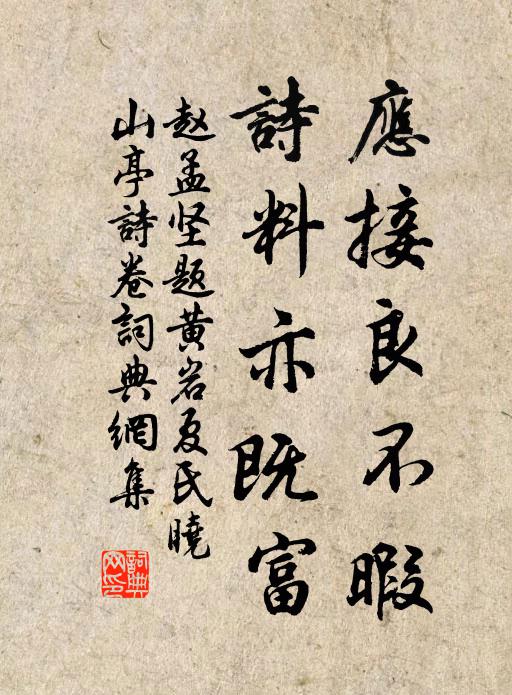 應接良不暇
詩料亦既富
赵孟坚题黄岩夏氏曉
山亭詩卷詞典網集
詞典
网印